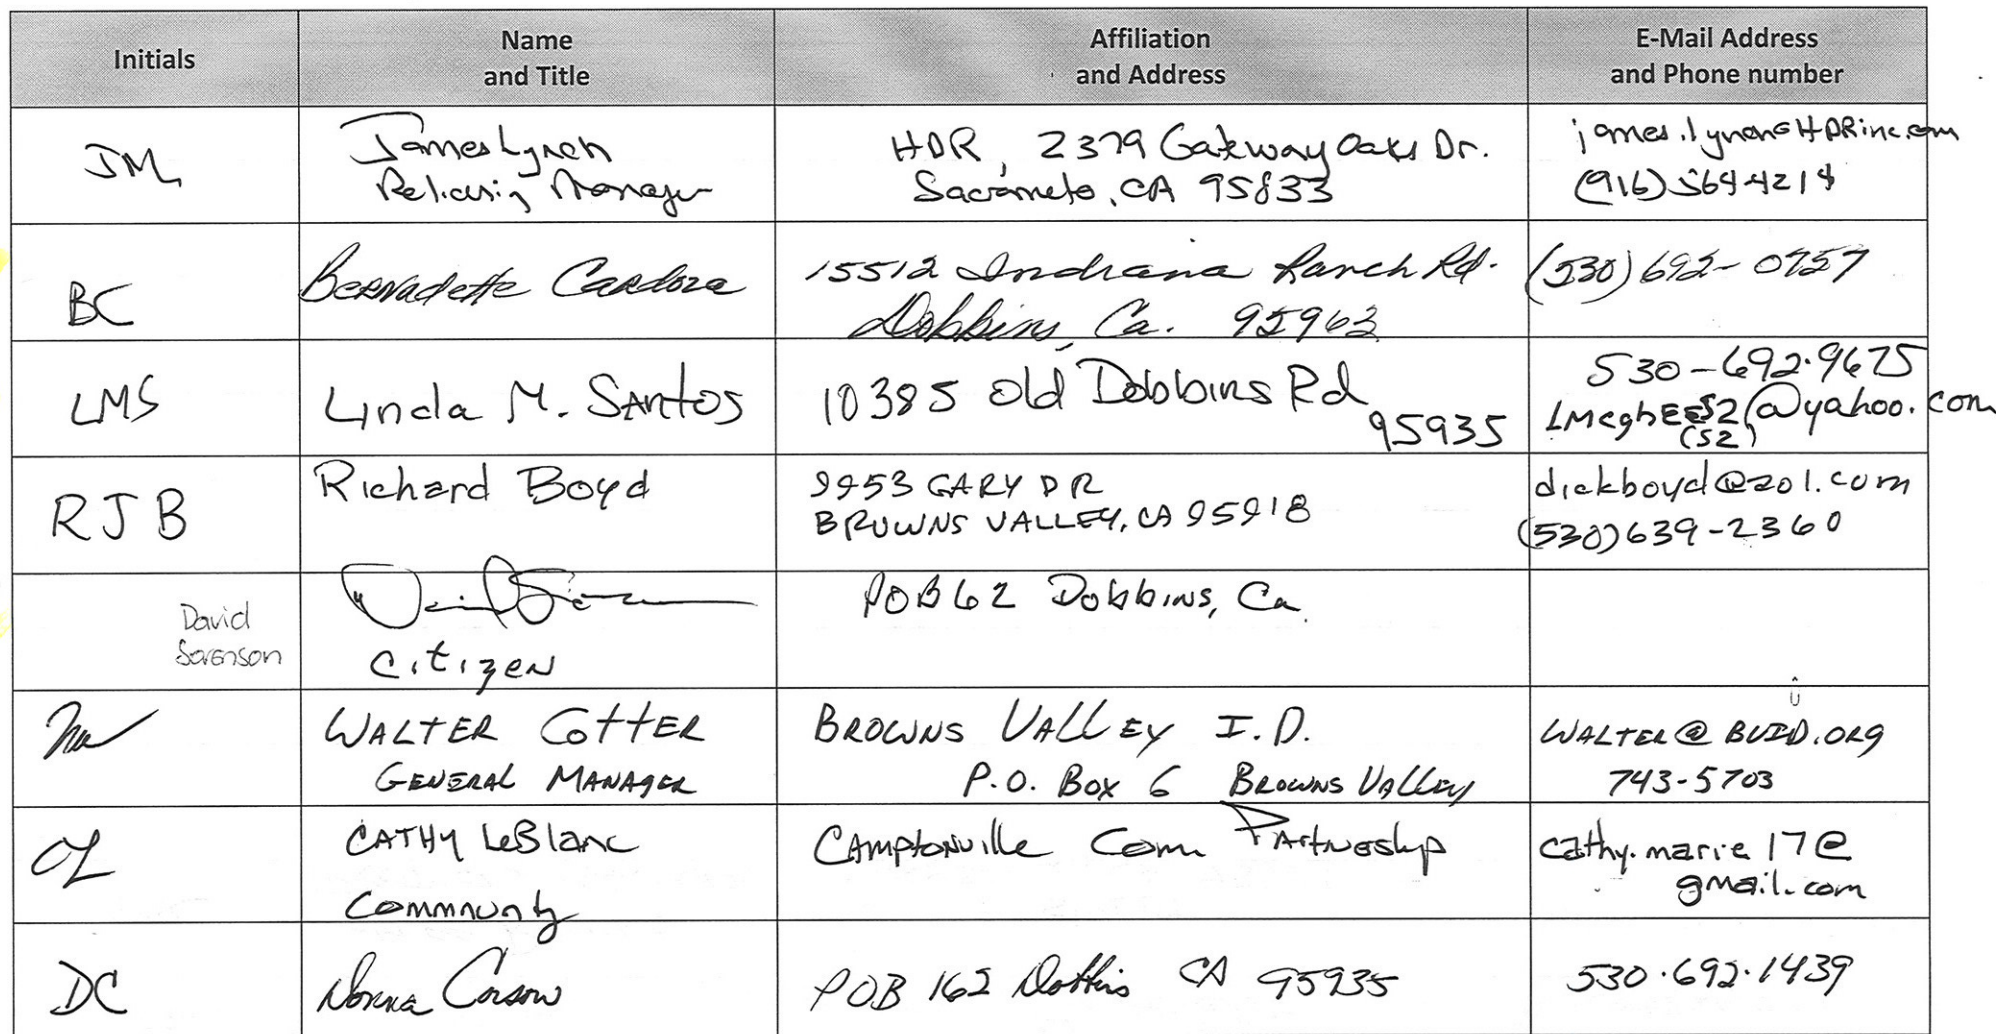 Initials
Name
and Title
Affiliation
and Address
E-Mail Address
and Phone number
JM
James Lynch
Relicensing Manager
HDR, 2379 Gateway Oaks Dr.
Sacrameto, CA 95833
james.lynch@HDRinc.com
(916) 564-4214
BC
Bernadette Cardoza
15512 Indiana Ranch Rd.
Dobbins, Ca. 95963
(530) 692-0757
LMS
Linda M. Santos
10385 Old Dobbins Rd
95935
530-692-9675
LMcghEE52@yahoo.com
(52)
RJB
Richard Boyd
9953 GARY DR
BROWNS VALLEY, CA 95918
dickboyd@aol.com
(530) 639-2360
David
Sorenson
Citizen
POB 62 Dobbins, Ca.
WALTER COTTER
GENERAL MANAGER
BROWNS VALLEY I.D.
P.O. Box 6 BROWNS VALLEY
WALTER@BVID.ORG
743-5703
CL
CATHY LeBlanc
Community
Camptonville Com Partnership
cathy.marie17@
gmail.com
DC
Donna Corson
POB 162 Dobbins CA 95935
530.692.1439